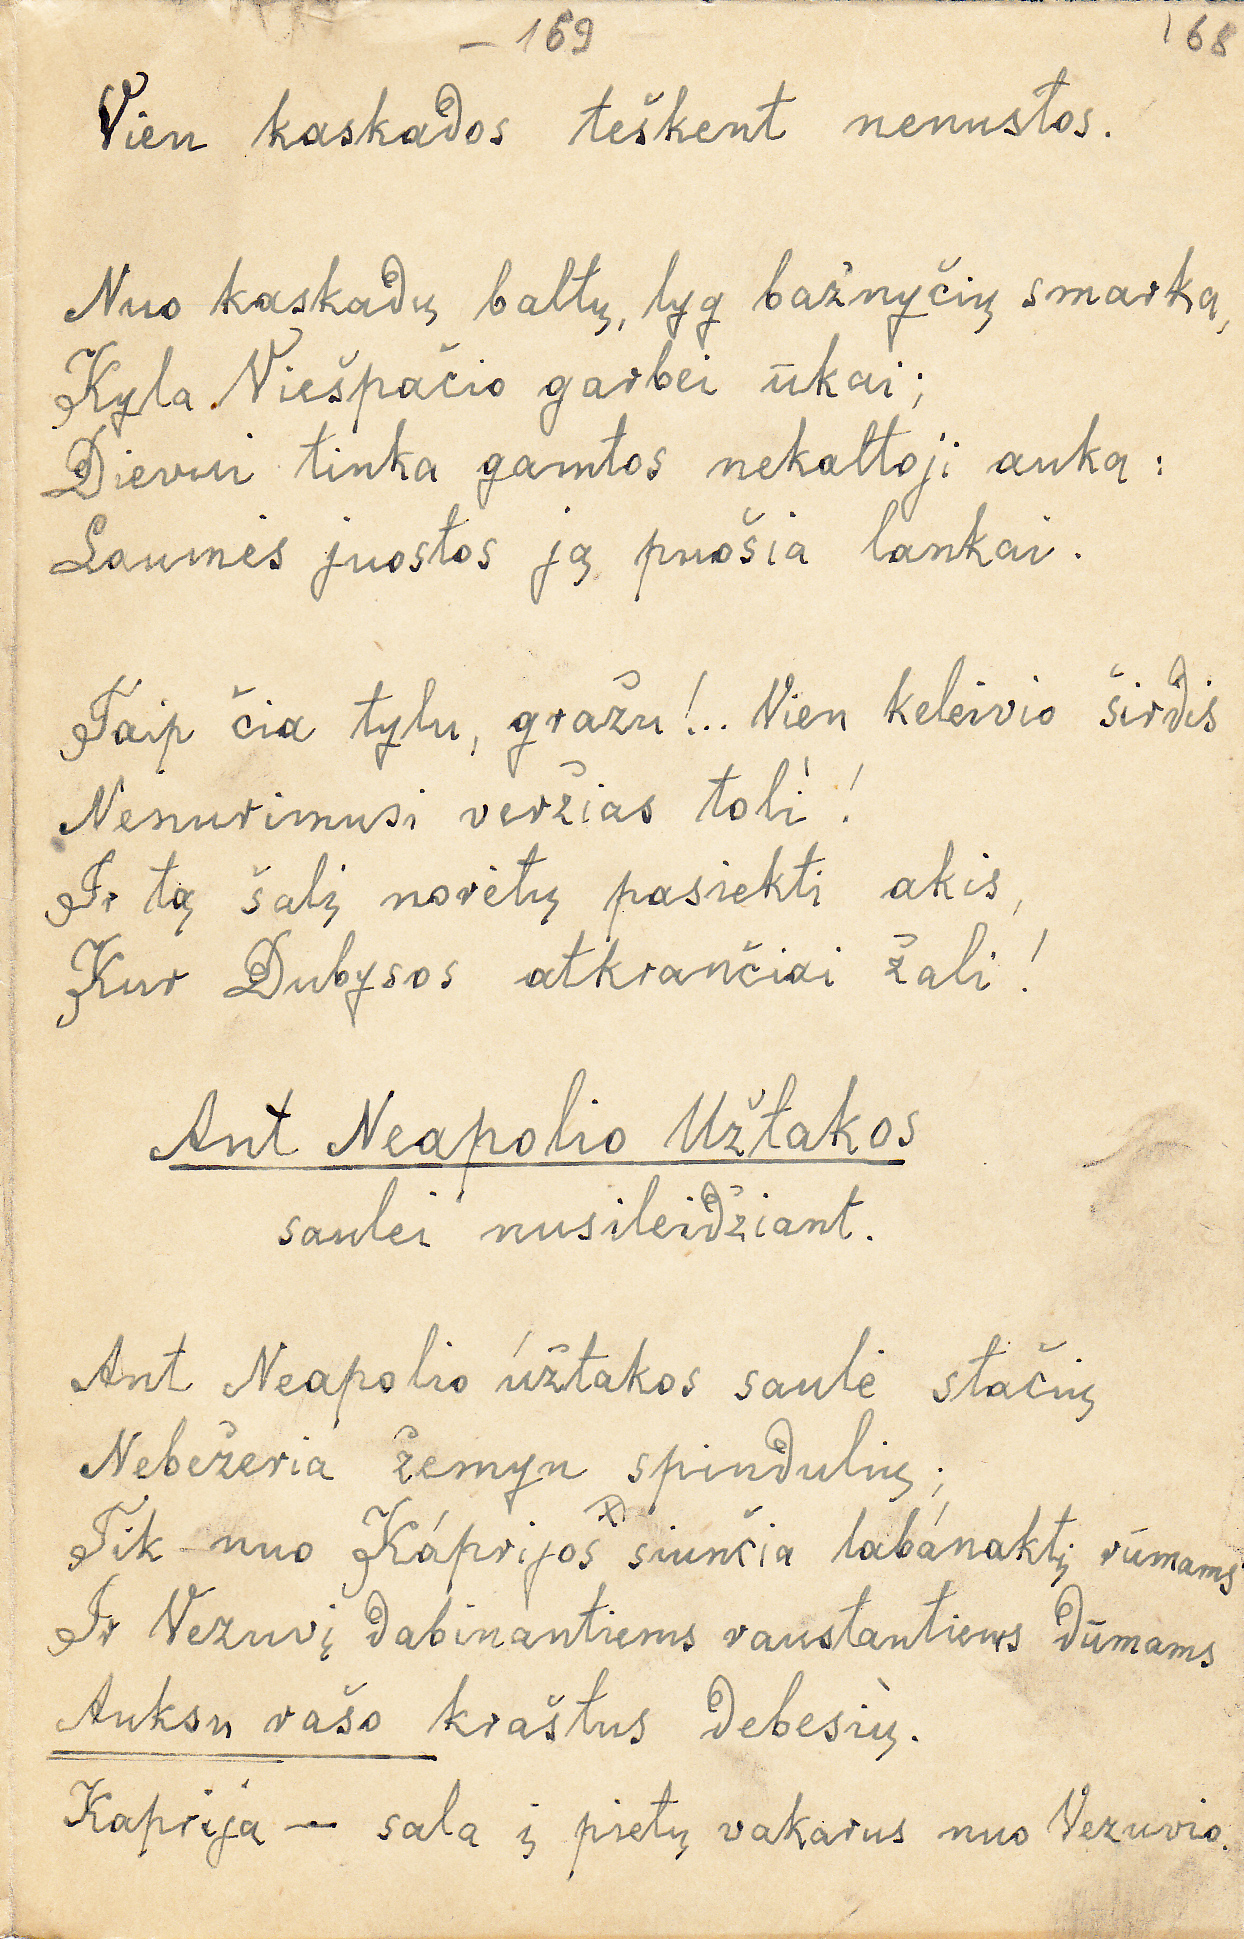 – 169
168
Vien kaskados teškent nenustos.
Nuo kaskadų baltų, lyg bažnyčių smarka,
Kyla Viešpačio garbei ūkai;
Dievui tinka gamtos nekaltoji auka:
Laumės juostos ją puošia lankai.
Taip čia tylu, gražu!.. Vien keleivio širdis
Nenurimusi veržias toli!
Ir tą šalį norėtų pasiekti akis,
Kur Dubysos atkrančiai žali!
Ant Neapolio Užtakos
saulei nusileidžiant.
Ant Neapolio úžtakos saulė stačių
Nebežeria žemyn spindulių;
Tik nuo Káprijos x) siunčia labánaktį rūmams
Ir Vezuvį dabinantiems raustantiems dūmams
Auksu rašo kraštus debesių.
Kaprija — sala į pietų vakarus nuo Vezuvio.